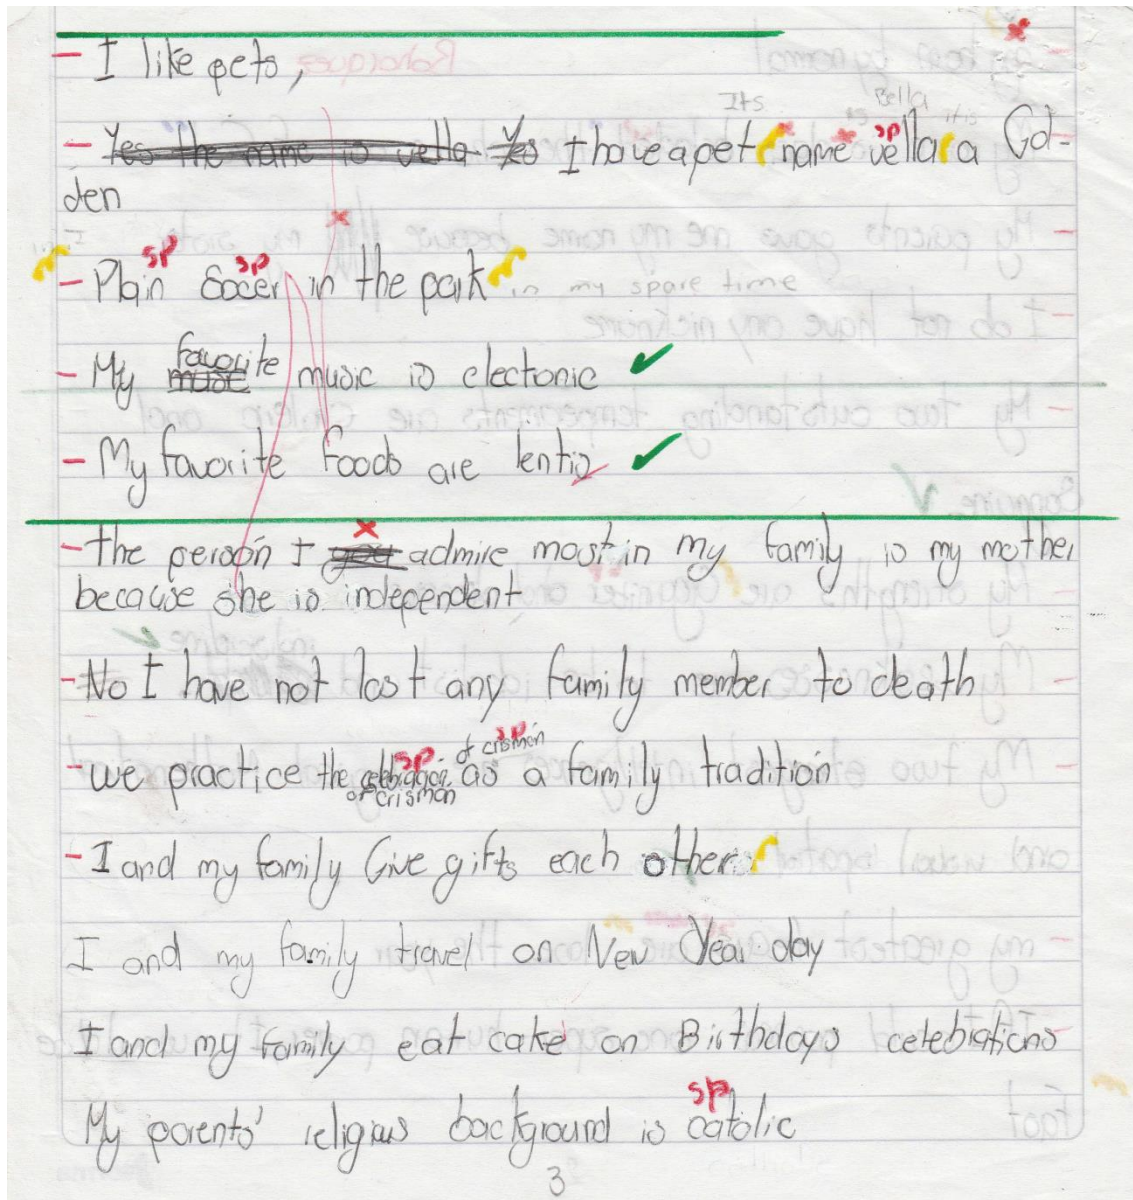 - I like pets,
Its Bella it is
- Yes the name is vella Yes I have a pet name vella a Gol-
sp
den
sp sp
- Plain Socer in the park in my spare time
favorite
- My music is electonic ✓
- My favorite foods are lentis ✓
- The person I you admire most in my family is my mother
because she is independent
- No I have not lost any family member to death
sp sp
of crisman
- we practice the celebration as a family tradition
of crisman
- I and my family Give gifts each other
I and my family travel on New Year day
I and my family eat cake on Birthdays celebrations
sp
My parents' religius background is catolic
3